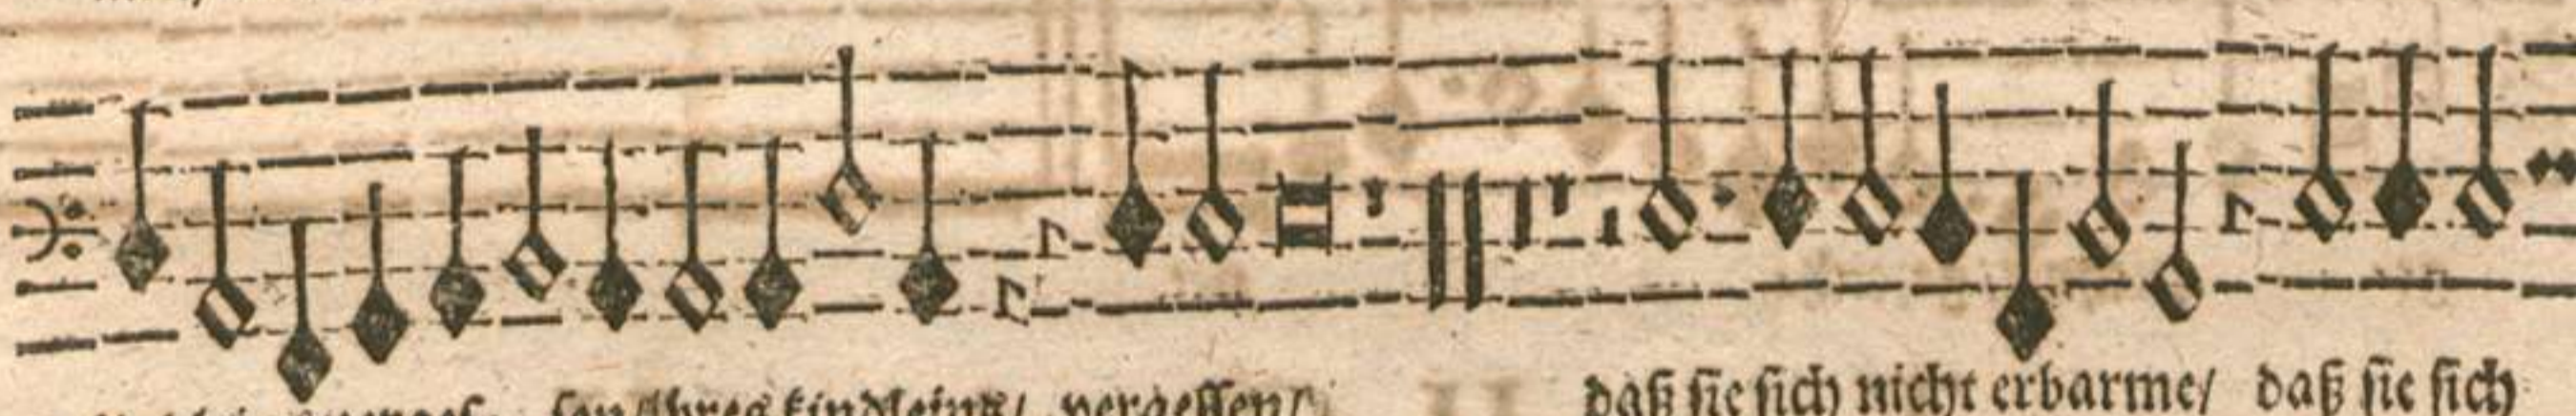 ihres kindleins/ vergessen/ daß sie sich nicht erbarme/ daß sie sich